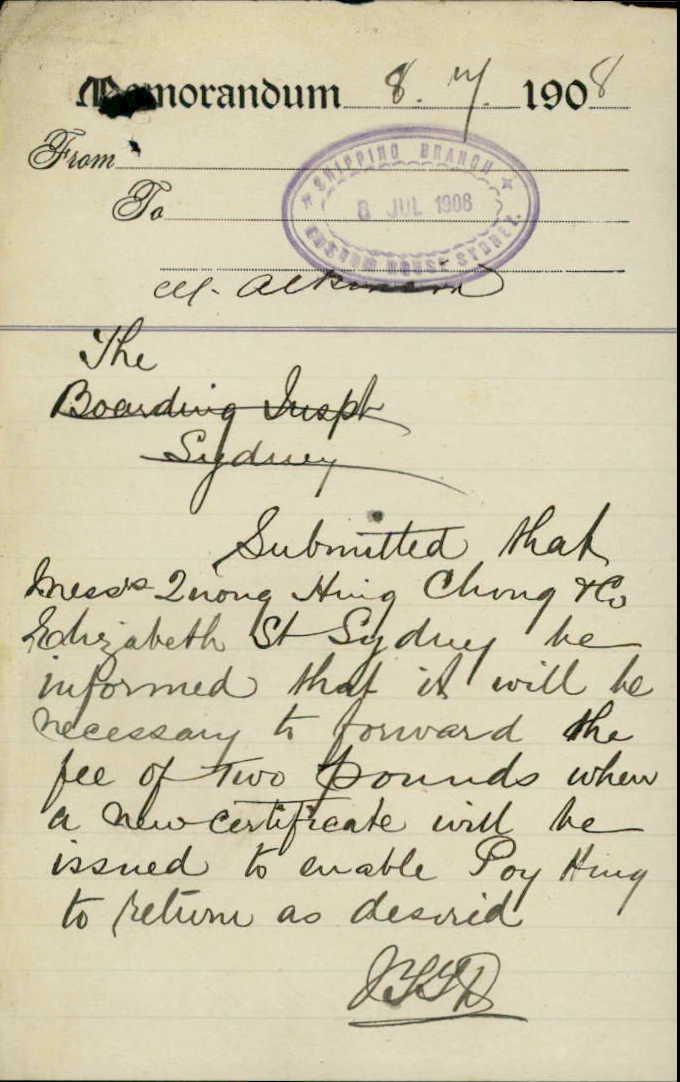 Memorandum 8. 7. 1908
From
To
SHIPPING BRANCH
8 JUL 1908
CUSTOM HOUSE SYDNEY.
Atkinson
The
Boarding Inspt
Sydney
Submitted that
Mess's Quong Hing Chong & Co
Elizabeth St Sydney be
informed that it will be
necessary to forward the
fee of two pounds when
a new certificate will be
issued to enable Poy Hing
to return as desired